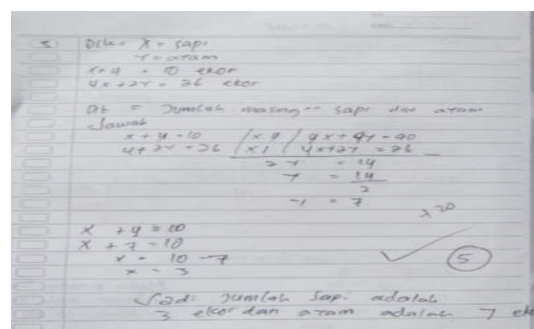 5 Dik = X = sapi
Y = ayam
x + y = 10 ekor
4x + 2y = 26 ekor
Dit = Jumlah masing-- sapi dan ayam
Jawab
x + y = 10 | x 4 | 4x + 4y = 40
4 + 2y = 26 | x 1 | 4x + 2y = 26
2 y = 14
y = 14
2
y = 7
x + y = 10
x + 7 = 10
x = 10 - 7
x = 3
5
Jadi Jumlah sapi adalah
3 ekor dan ayam adalah 7